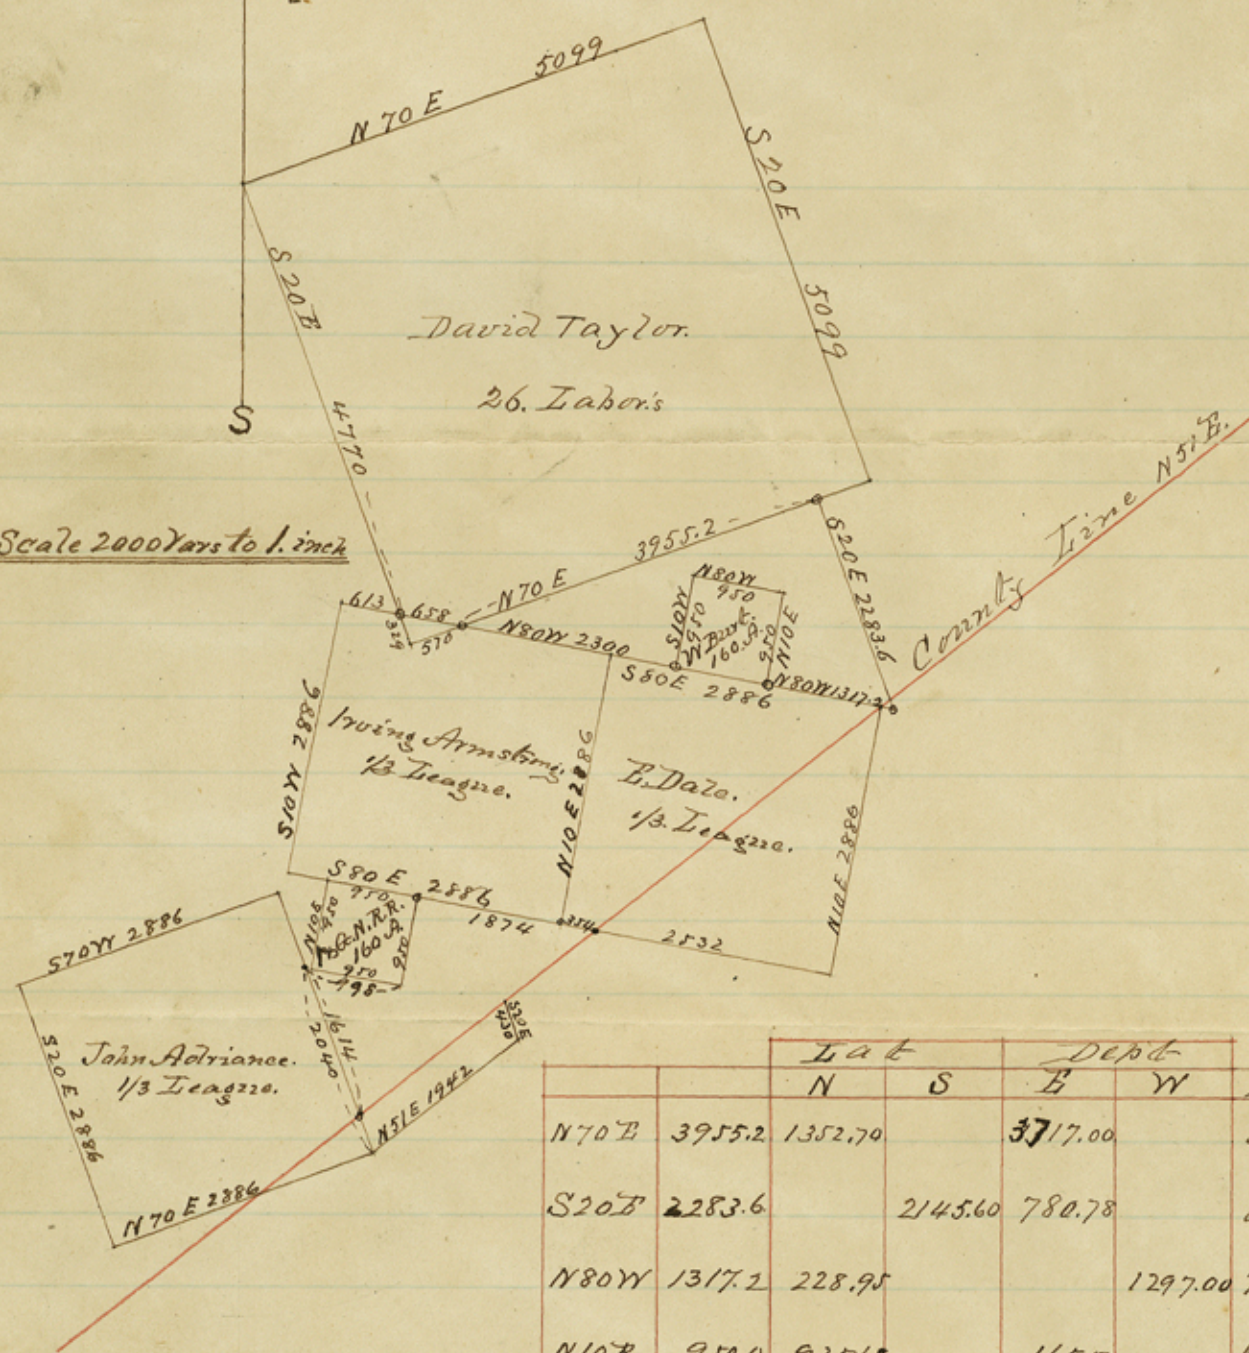 N 70 E 5099
S 20 E 5099
S 20 E 4770
David Taylor.
26. Labor's
S
Scale 2000 Vars to 1. inch
County Line N 51 E.
613
658
329
570
N 70 E 3955.2
N80W 2300
S20E 2283.6
N80W
950
S10W
950
W Burk
160 A.
950
N10E
S80E 2886
N80W 1317.2
S10W 2886
Irving Armstrong.
1/3 League.
N10E 2886
E. Dale.
1/3. League.
N10E 2886
S80E 2886
950
1874
354
2532
N10E
950
R.R.
160 A.
950
950
798
S70W 2886
S20E 2886
John Adriance.
1/3 League.
1614
2040
N51E 1942
S20E
430
N70E 2886
Lat Dept
N S E W
N70E 3955.2 1352.70 3717.00
S20E 2283.6 2145.60 780.78
N80W 1317.2 228.95 1297.00